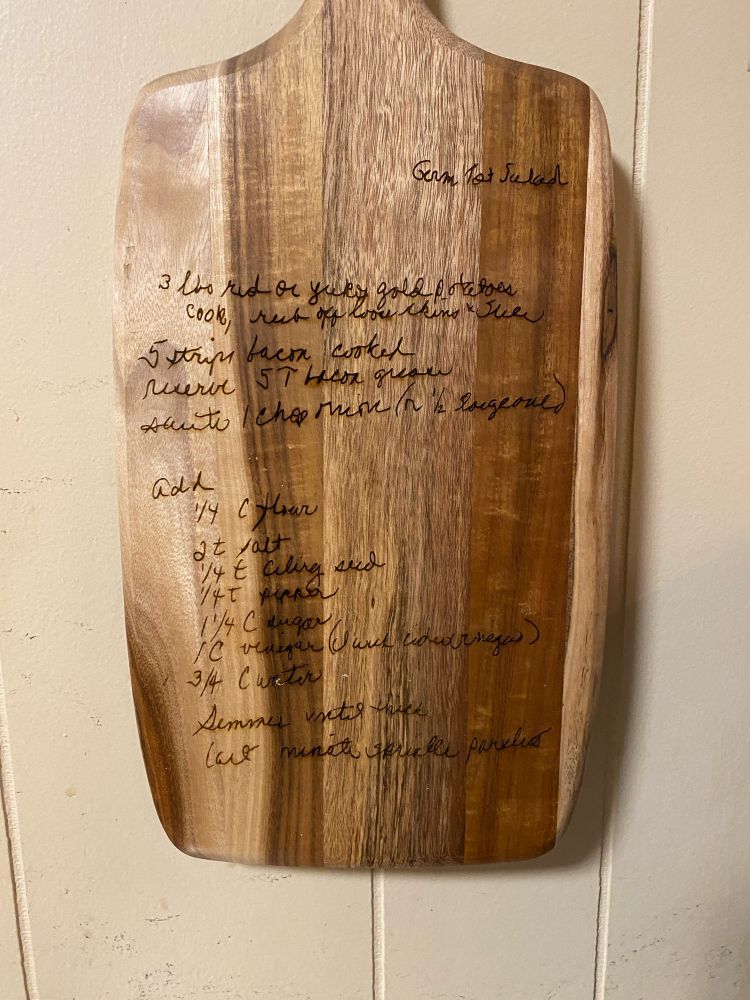 Germ Pot Salad
3 lbs red or yukg gold potatoes
cook, rub off loose skins & slice
5 strips bacon cooked
reserve 5 T bacon grease
saute 1 chop onion (or 1/2 large one)
Add
1/4 C flour
2 t salt
1/4 t celery seed
1/4 t pepper
1 1/4 C sugar
1 C vinegar (I use cider vinegar)
3/4 C water
Simmer until thick
last minute sprinkle parsley